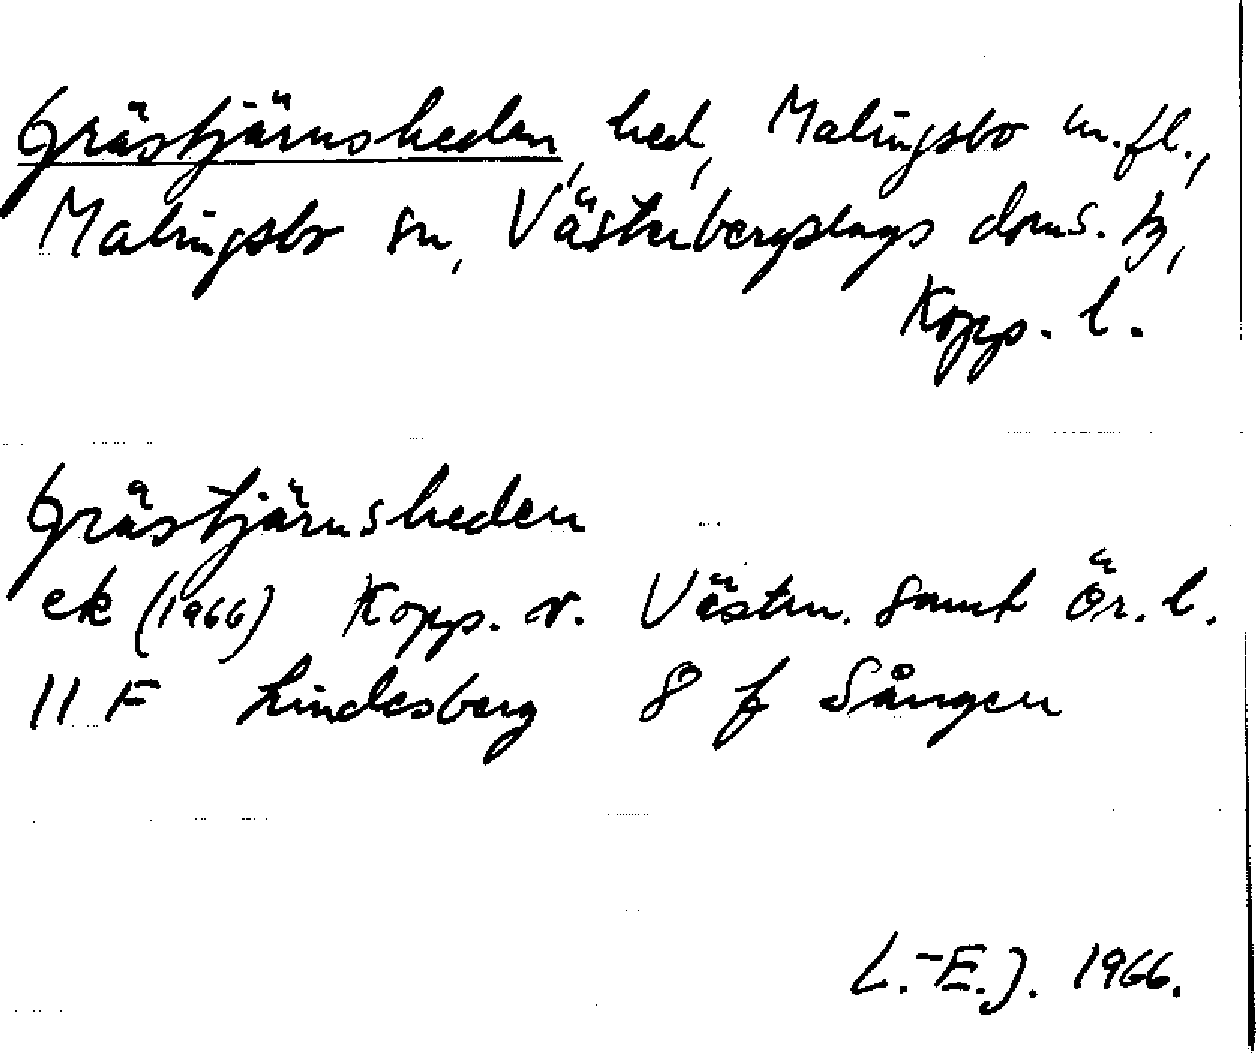 Grästjärnsheden, hed, Malingsbo m.fl.,
Malingsbo sn, Västerbergslags doms. tg,
Kopp. l.
Grästjärnsheden
ek (1966) Kopp. o. Västm. samt Ör. l.
11 F Lindesberg 8 f Sången
L.-E.J. 1966.